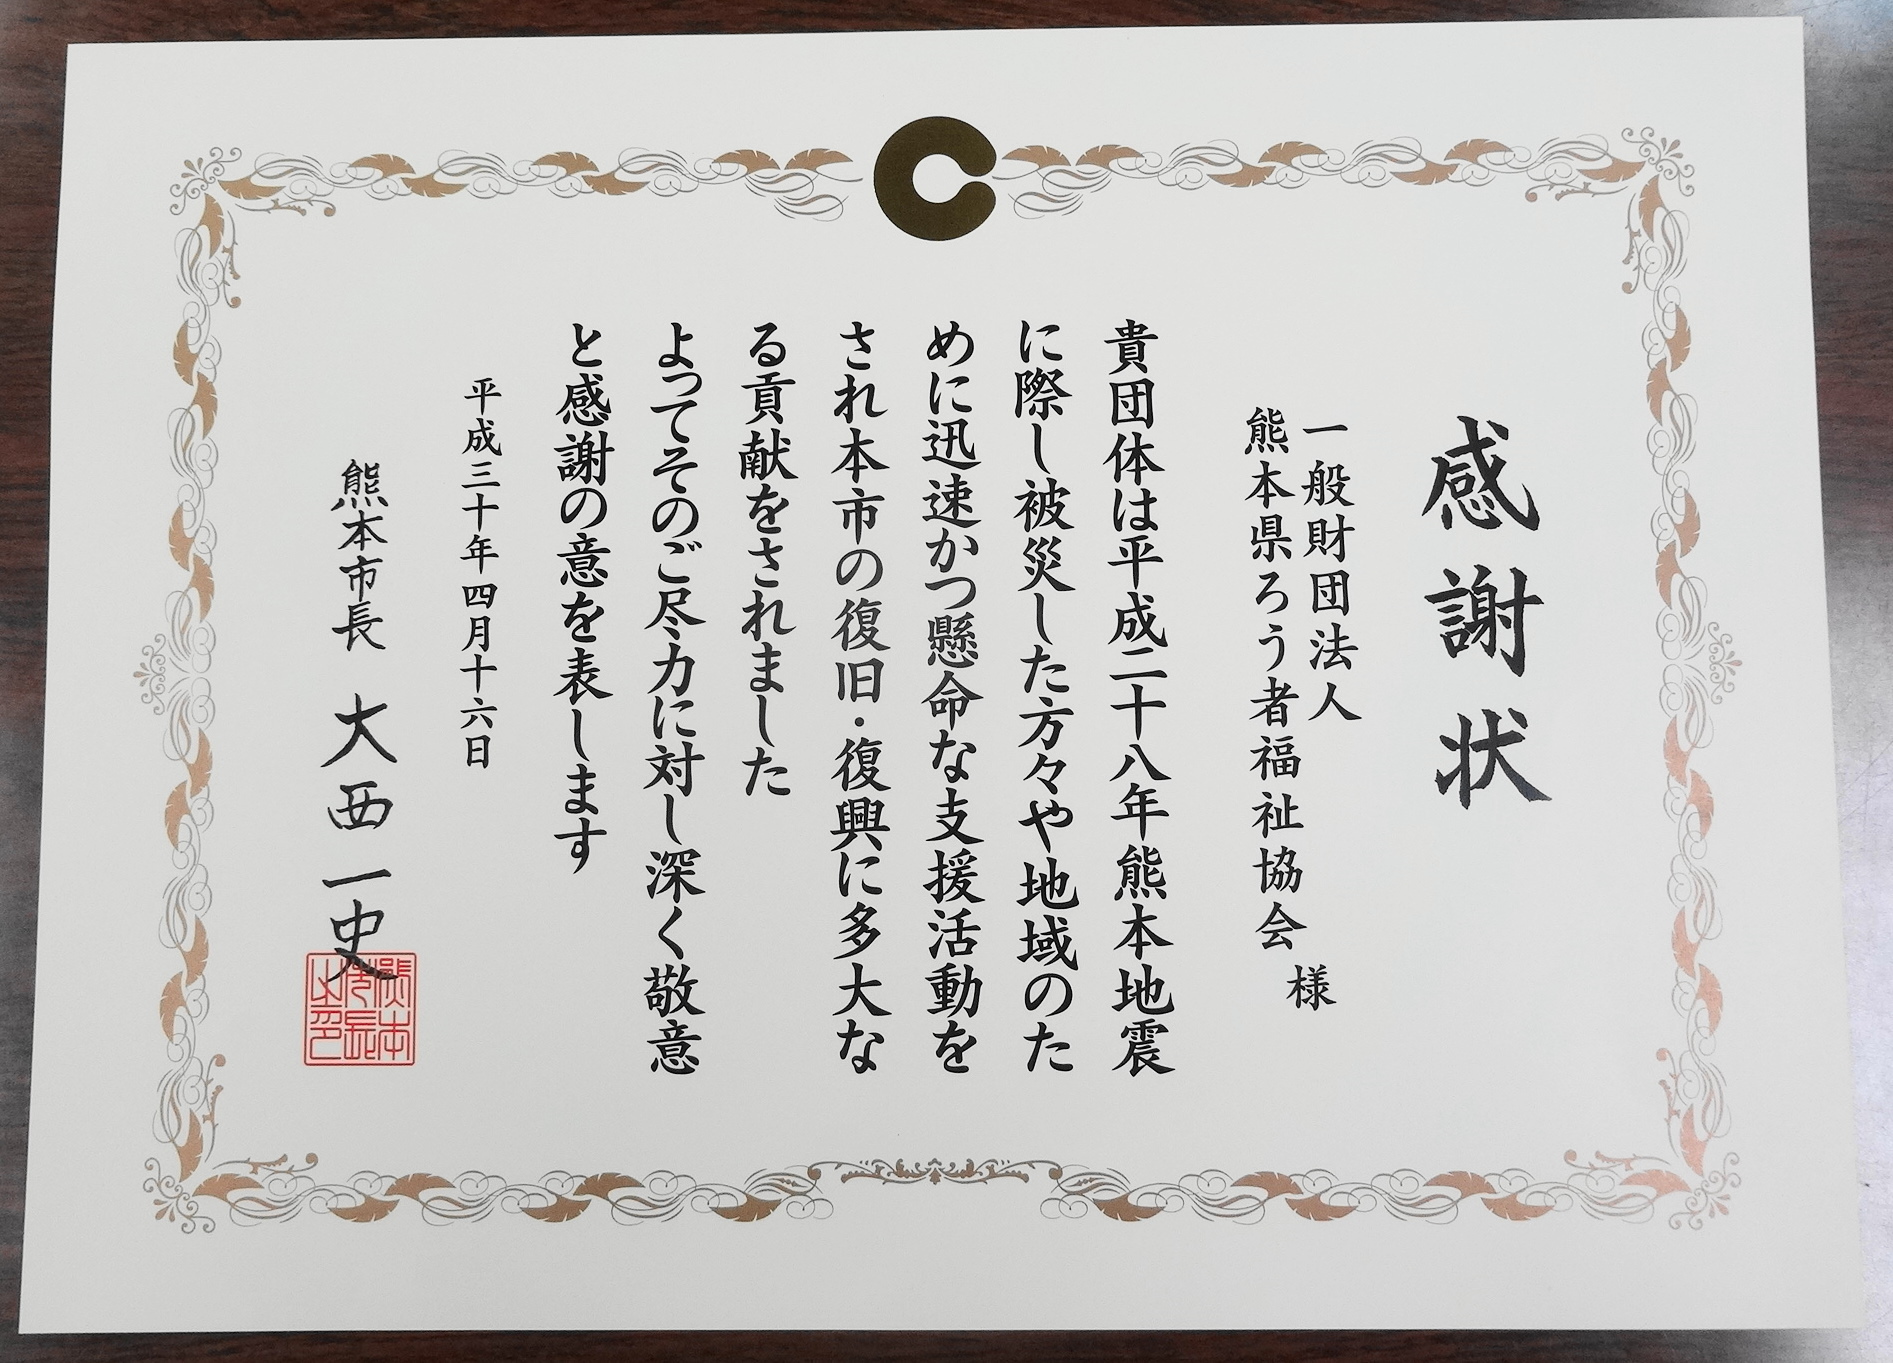 感謝状
一般財団法人
熊本県ろう者福祉協会
様
貴団体は平成二十八年熊本地震
に際し被災した方々や地域のた
めに迅速かつ懸命な支援活動を
され本市の復旧・復興に多大な
る貢献をされました
よってそのご尽力に対し深く敬意
と感謝の意を表します
平成三十年四月十六日
熊本市長 大西一史
熊本
市長
之印